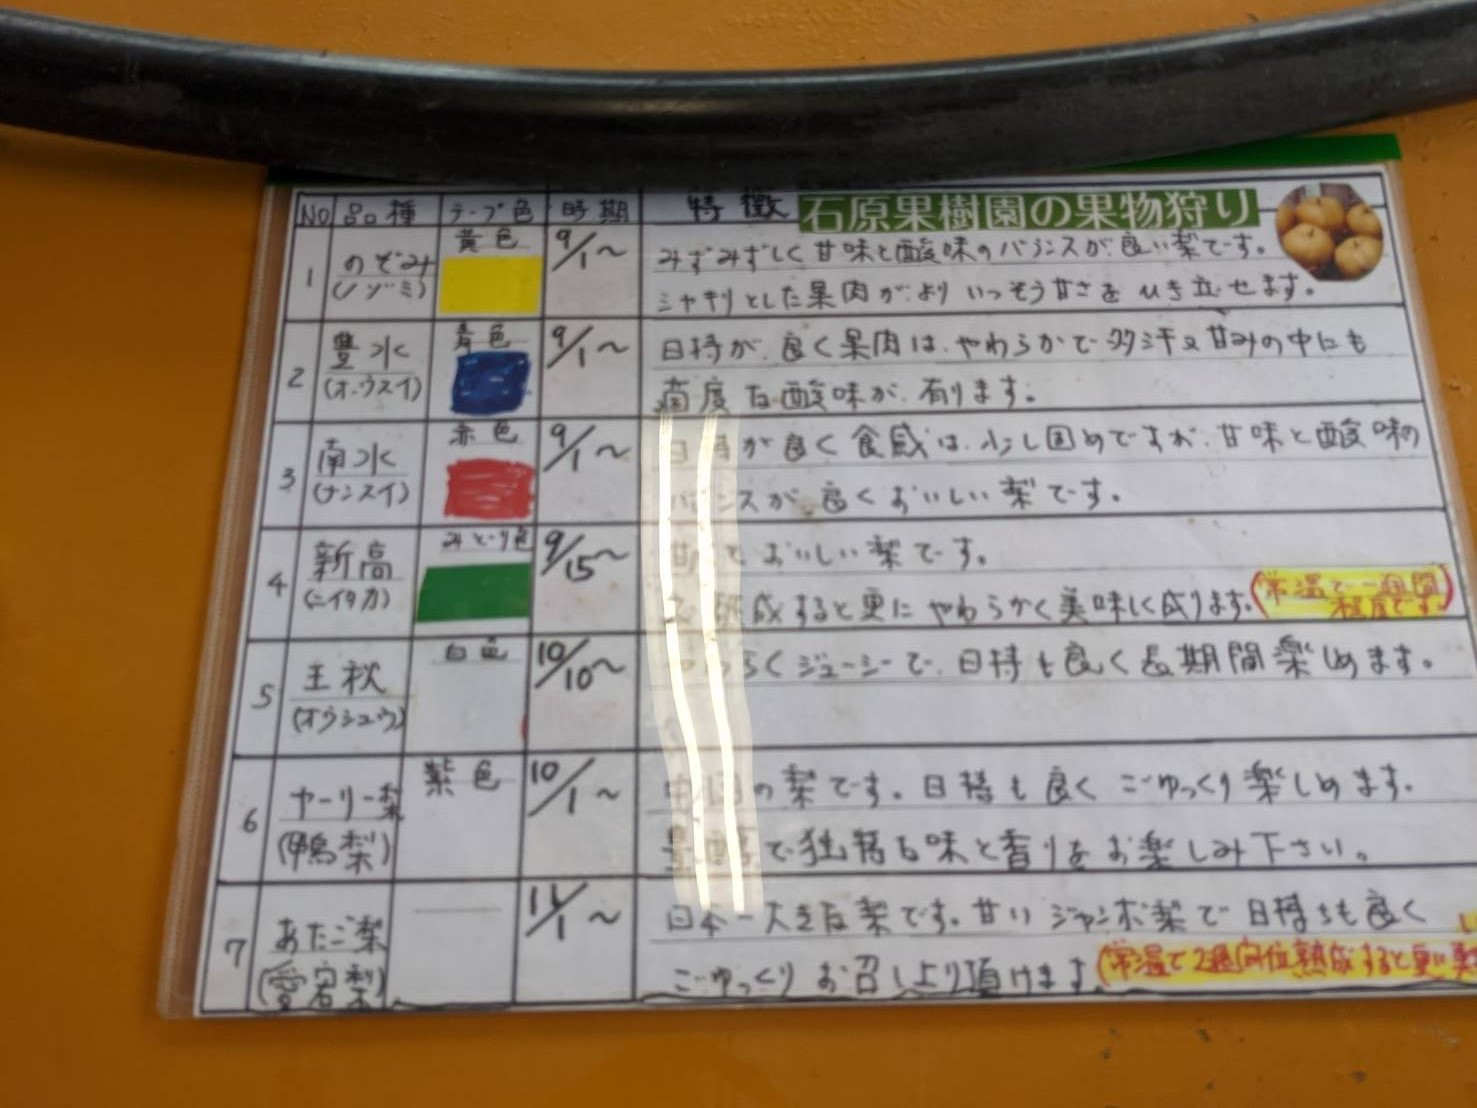 石原果樹園の果物狩り
NO 品種 テープ色 時期 特徴
1 のぞみ (ノゾミ) 黄色 9/1〜
みずみずしく甘味と酸味のバランスが良い梨です。
シャキリとした果肉がよりいっそう甘さをひき立せます。
2 豊水 (オウスイ) 青色 9/1〜
日持が良く果肉はやわらかで多汁又甘みの中にも
適度な酸味が有ります。
3 南水 (ナンスイ) 赤色 9/1〜
日持が良く食感は少し固めですが甘味と酸味の
バランスが良くおいしい梨です。
4 新高 (ニイタカ) みどり色 9/15〜
甘くておいしい梨です。
熟成すると更にやわらかく美味しく成ります。
(常温で一週間
程度です。)
5 王秋 (オウシュウ) 白色 10/10〜
ジューシーで日持も良く長期間楽しめます。
6 ヤーリー梨 (鴨梨) 紫色 10/1〜
中国の梨です。日持も良くごゆっくり楽しめます。
で独特な味と香りをお楽しみ下さい。
7 あたご梨 (愛宕梨) 11/1〜
日本一大きな梨です。甘いジャンボ梨で日持ちも良く
ごゆっくりお召し上り頂けます
(常温で2週間位熟成すると更に